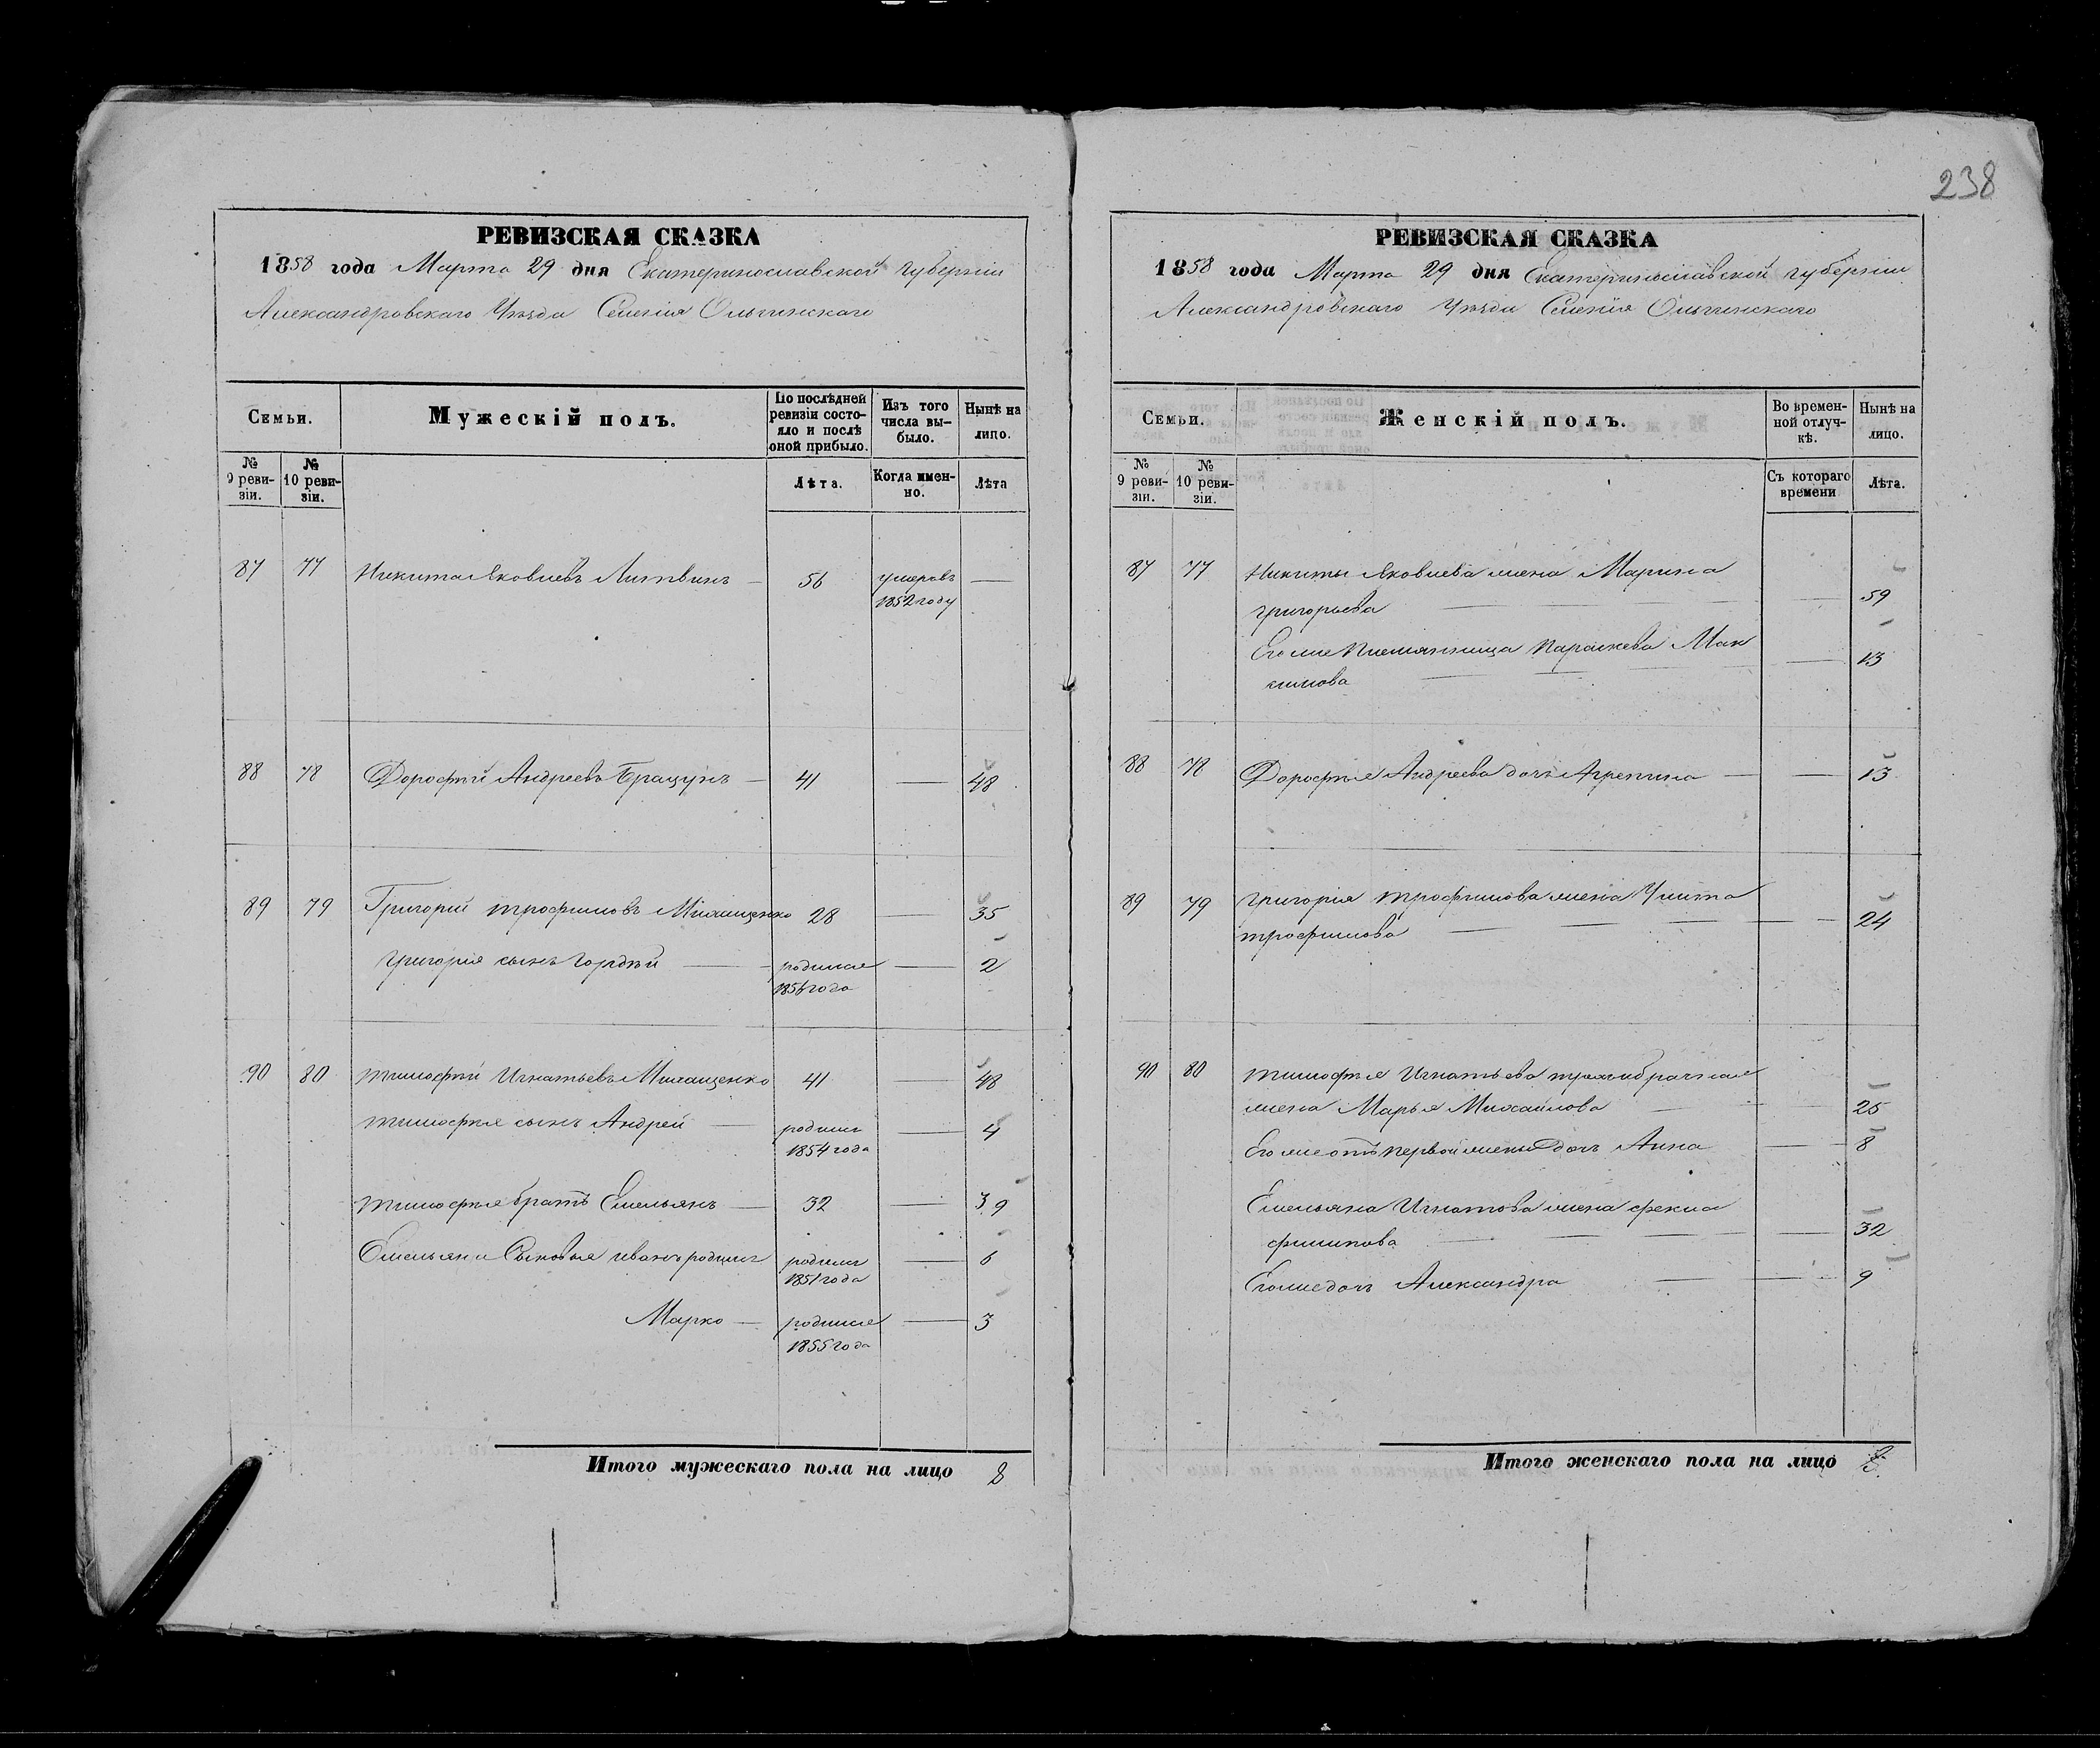 238
РЕВИЗСКАЯ СКАЗКА
1858 года Марта 29 дня Екатеринославской губерніи
Александровскаго Уѣзда Селенія Ольгинскаго
Семьи.
Мужескій полъ.
По послѣдней ревизіи состо-
яло и послѣ
оной прибыло.
Изъ того
числа вы-
было.
Нынѣ на
лицо.
№
9 реви-
зіи.
№
10 реви-
зіи.
Лѣта.
Когда имен-
но.
Лѣта
87 77 Никита Яковлевъ Литвинъ — 56 умеръ въ —
1852 году
88 78 Дорофѣй Андреевъ Брацунъ — 41 — 48
89 79 Григорій трофимовъ Міхащенко 28 — 35
григорія сынъ Гордѣй — родился — 2
1856 года
90 80 тимофѣй Игнатьевъ Михащенко 41 — 48
тимофея сынъ Андрей — родилсь — 4
1854 года
тимофея братъ Емельянъ — 32 — 39
Емельяна Сыновья иванъ родилсь родилсь — 6
1851 года
Марко — родился — 3
1855 года
Итого мужескаго пола на лицо 8
РЕВИЗСКАЯ СКАЗКА
1858 года Марта 29 дня Екатеринославской губерніи
Александровскаго Уѣзда Селенія Ольгинскаго
Семьи.
Женскій полъ.
Во времен-
ной отлуч-
кѣ.
Нынѣ на
лицо.
№
9 реви-
зіи.
№
10 реви-
зіи.
Съ котораго
времени
Лѣта.
87 77 Никиты Яковлева жена Марина
григорьева — — 59
Его же племянница параскева Мак
симова — — 13
88 78 Дорофея Андреева дочь Агрепина — — 13
89 79 григорія трофимова жена Улита
трофимова — — 24
90 80 тимофея Игнатьева
жена Марья Михайлова — — 25
Его же отъ первой жены дочь Анна — 8
Емельяна Игнатова жена фекла
филипова — — 32
Его же дочь Александра — — 9
Итого женскаго пола на лицо